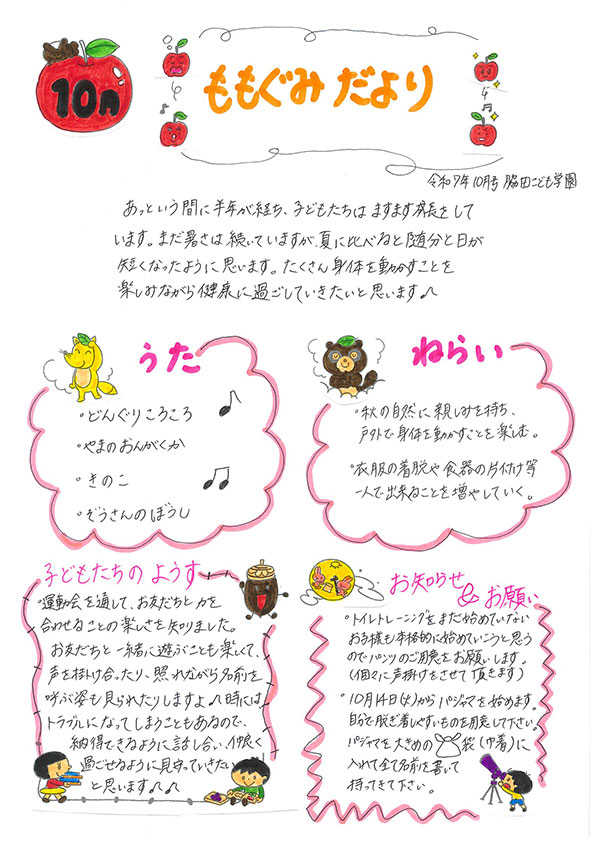 10月
ももぐみだより
令和7年10月号 脇田こども学園
あっという間に半年が経ち、子どもたちはますます成長をして
います。まだ暑さは続いていますが、夏に比べると随分と日が
短くなったように思います。たくさん身体を動かすことを
楽しみながら健康に過ごしていきたいと思います♪
うた
・どんぐりころころ
・やまのおんがくか
・きのこ
・ぞうさんのぼうし
ねらい
・秋の自然に親しみを持ち、
戸外で身体を動かすことを楽しむ。
・衣服の着脱や食器の片付け等
一人で出来ることを増やしていく。
子どもたちのようす
・運動会を通して、お友だちと力を
合わせることの楽しさを知りました。
お友だちと一緒に遊ぶことも楽しくて、
声を掛け合ったり、照れながら名前を
呼ぶ姿も見られたりしますよ♪時には
トラブルになってしまうこともあるので、
納得できるように話し合い、仲良く
過ごせるように見守っていきたい
と思います♪♪
お知らせ&お願い
・トイレトレーニングをまだ始めていない
お子様も本格的に始めていこうと思う
のでパンツのご用意をお願いします。
(個々に声掛けをさせて頂きます)
・10月14日(火)からパジャマを始めます。
自分で脱ぎ着しやすいものを用意して下さい。
パジャマを大きめの袋(巾着)に
入れて全て名前を書いて
持ってきて下さい。